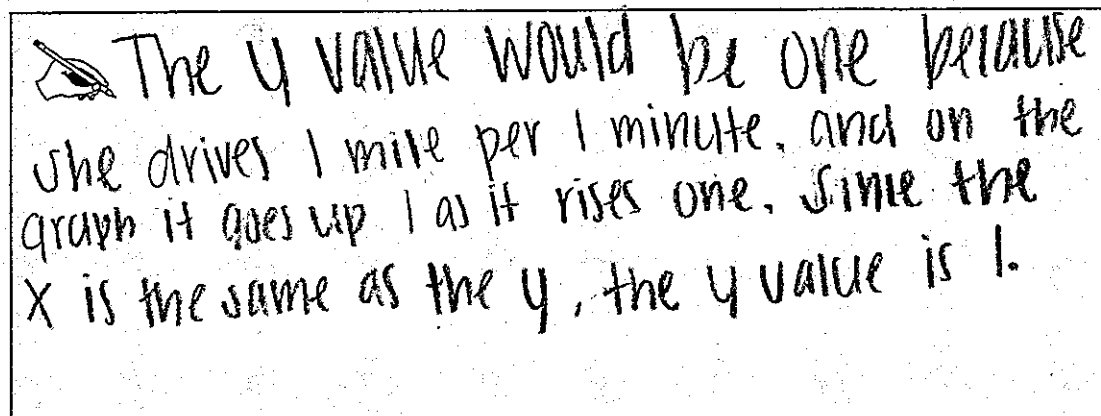 The y value would be one because
she drives 1 mile per 1 minute. and on the
graph it goes up 1 as it rises one. Since the
X is the same as the y, the y value is 1.